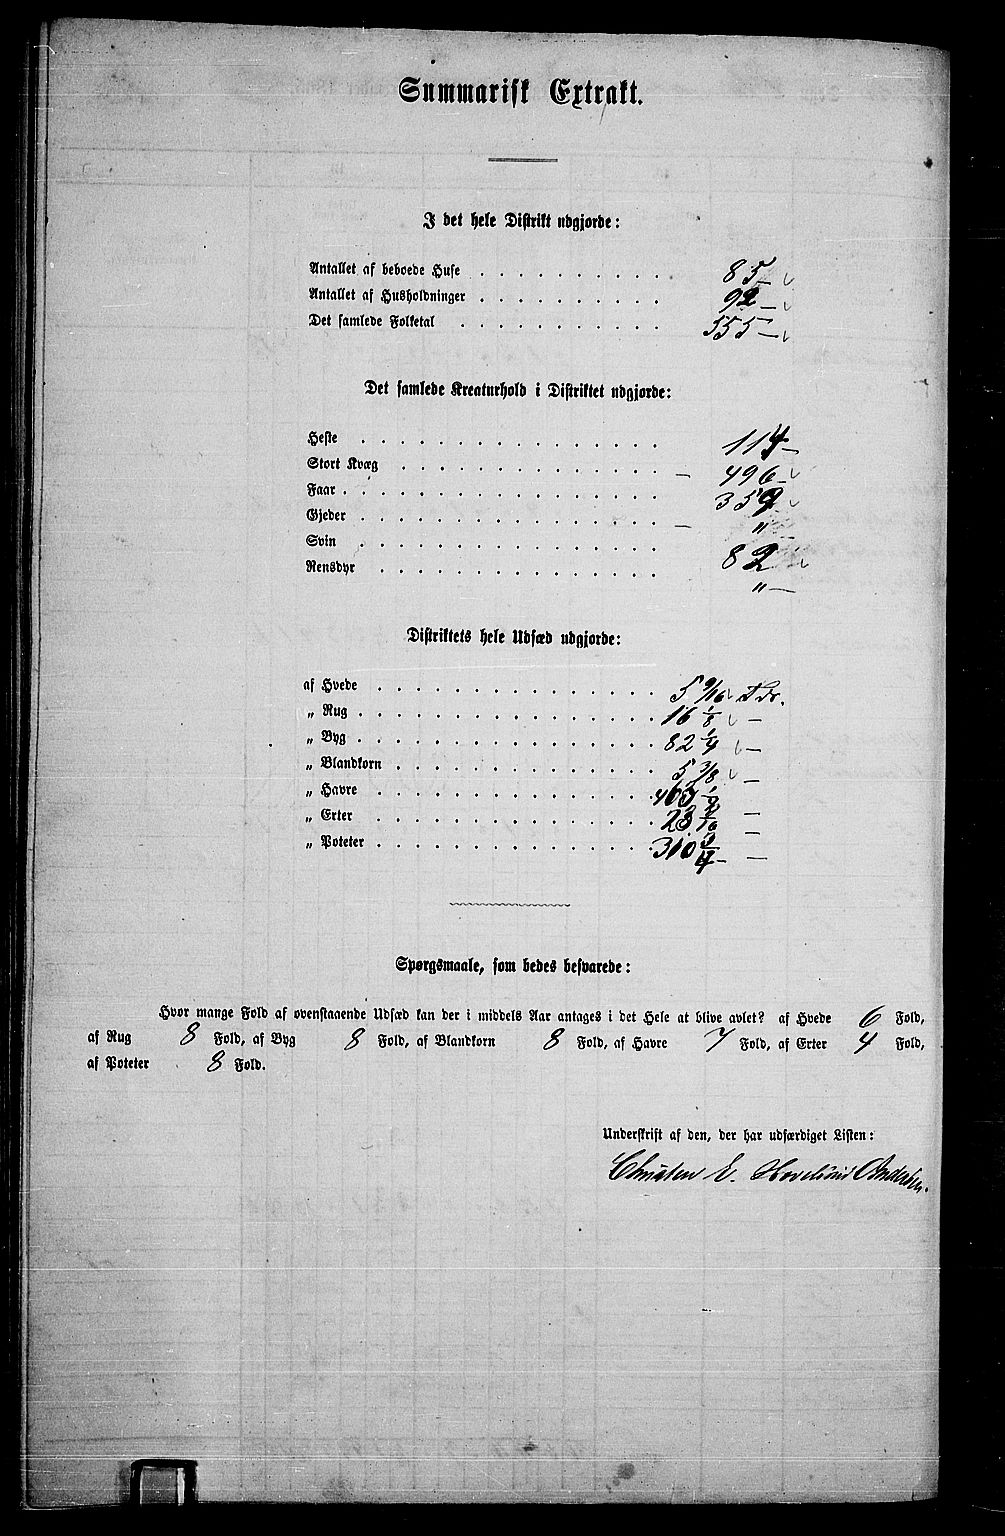 Summarisk Extrakt.
I det hele Distrikt udgjorde:
Antallet af beboede Huse . . . . . . . . 85
Antallet af Husholdninger . . . . . . . . 92
Det samlede Folketal . . . . . . . . . 555
Det samlede Kreaturhold i Distriktet udgjorde:
Heste . . . . . . . . . . . . 114
Stort Kvæg . . . . . . . . . . 496
Faar . . . . . . . . . . . . . 359
Gjeder . . . . . . . . . . . . "
Svin . . . . . . . . . . . . 82
Rensdyr . . . . . . . . . . . "
Distriktets hele Udsæd udgjorde:
af Hvede . . . . . . . . . . . 5 9/16 Tdr.
„ Rug . . . . . . . . . . . . 16 1/8 —
„ Byg . . . . . . . . . . . . 82 1/4 —
„ Blandkorn . . . . . . . . . . 5 3/8 —
„ Havre . . . . . . . . . . . 463 1/2 —
„ Erter . . . . . . . . . . . —
„ Poteter . . . . . . . . . . . 310 3/4 —
Spørgsmaale, som bedes besvarede:
Hvor mange Fold af ovenstaaende Udsæd kan der i middels Aar antages i det Hele at blive avlet? af Hvede 6 Fold,
af Rug 8 Fold, af Byg 8 Fold, af Blandkorn 8 Fold, af Havre 7 Fold, af Erter 4 Fold,
af Poteter 8 Fold.
Underskrift af den, der har udfærdiget Listen:
Christen E. Hovelsrud Andersen.